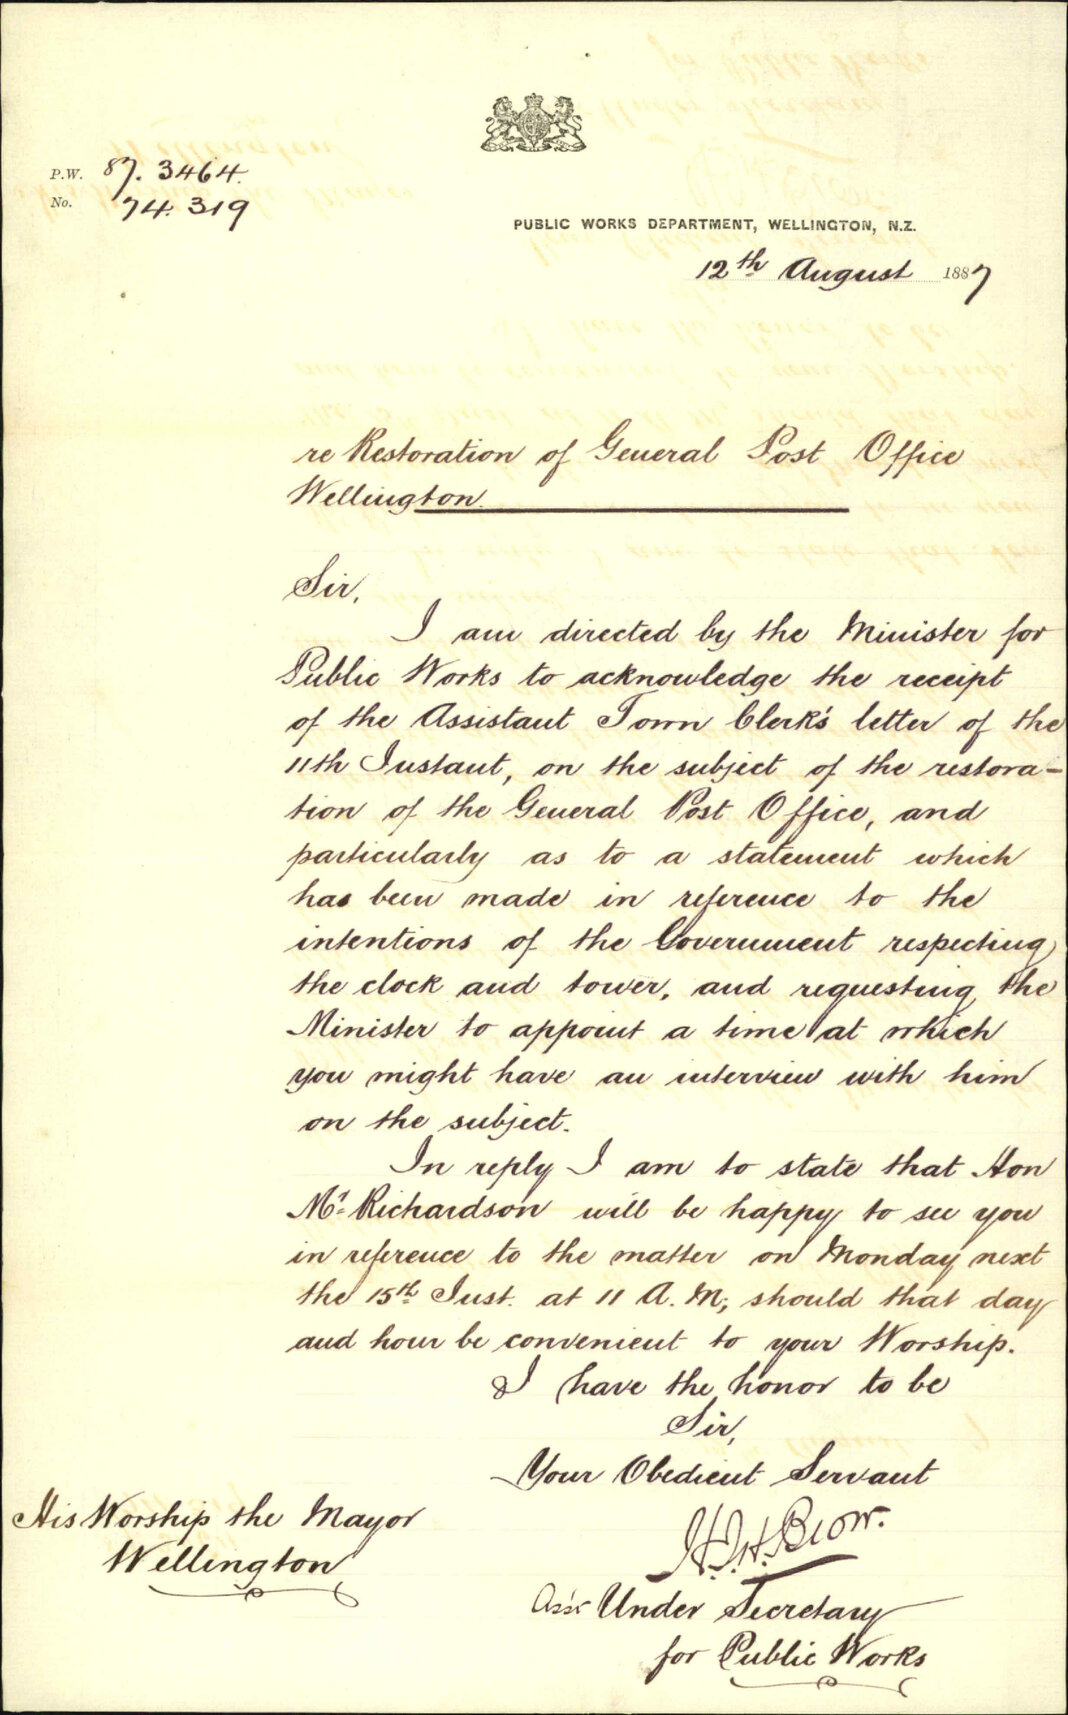 P.W. 87. 3464.
No. 74. 319
PUBLIC WORKS DEPARTMENT, WELLINGTON, N.Z.
12th August 1887
re Restoration of General Post Office
Wellington.
Sir,
I am directed by the Minister for
Public Works to acknowledge the receipt
of the Assistant Town Clerk's letter of the
11th Instant, on the subject of the restora-
tion of the General Post Office, and
particularly as to a statement which
has been made in reference to the
intentions of the Government respecting
the clock and tower, and requesting the
Minister to appoint a time at which
you might have an interview with him
on the subject.
In reply I am to state that Hon
Mr. Richardson will be happy to see you
in reference to the matter on Monday next
the 15th Inst. at 11 A.M; should that day
and hour be convenient to your Worship.
I have the honor to be
Sir,
Your Obedient Servant
H.J.H. Blow.
Asst Under Secretary
for Public Works
His Worship the Mayor
Wellington